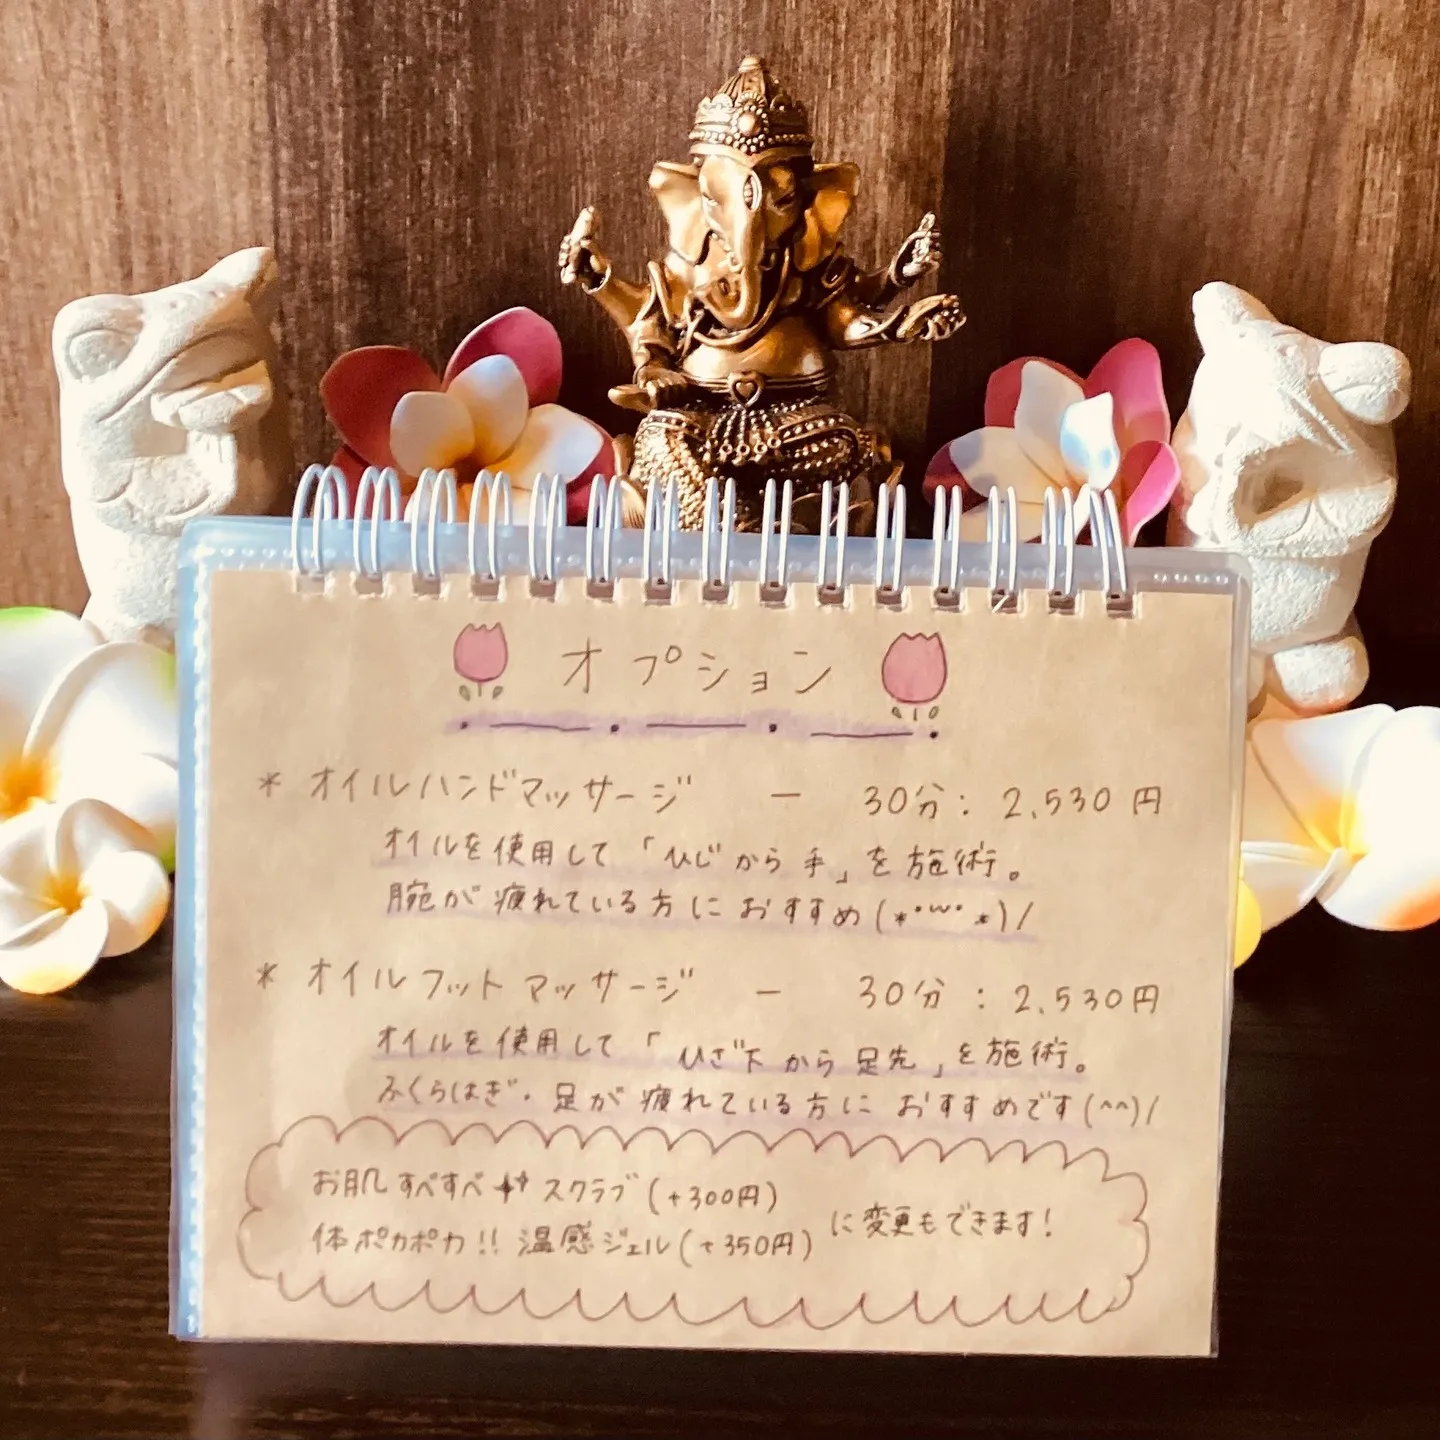 オプション
* オイルハンドマッサージ － 30分：2,530円
オイルを使用して「ひじから手」を施術。
腕が疲れている方におすすめ(*･ω･*)/
* オイルフットマッサージ － 30分：2,530円
オイルを使用して「ひざ下から足先」を施術。
ふくらはぎ・足が疲れている方におすすめです(^^)/
お肌すべすべ スクラブ(+300円)
体ポカポカ!! 温感ジェル(+350円)
に変更もできます!